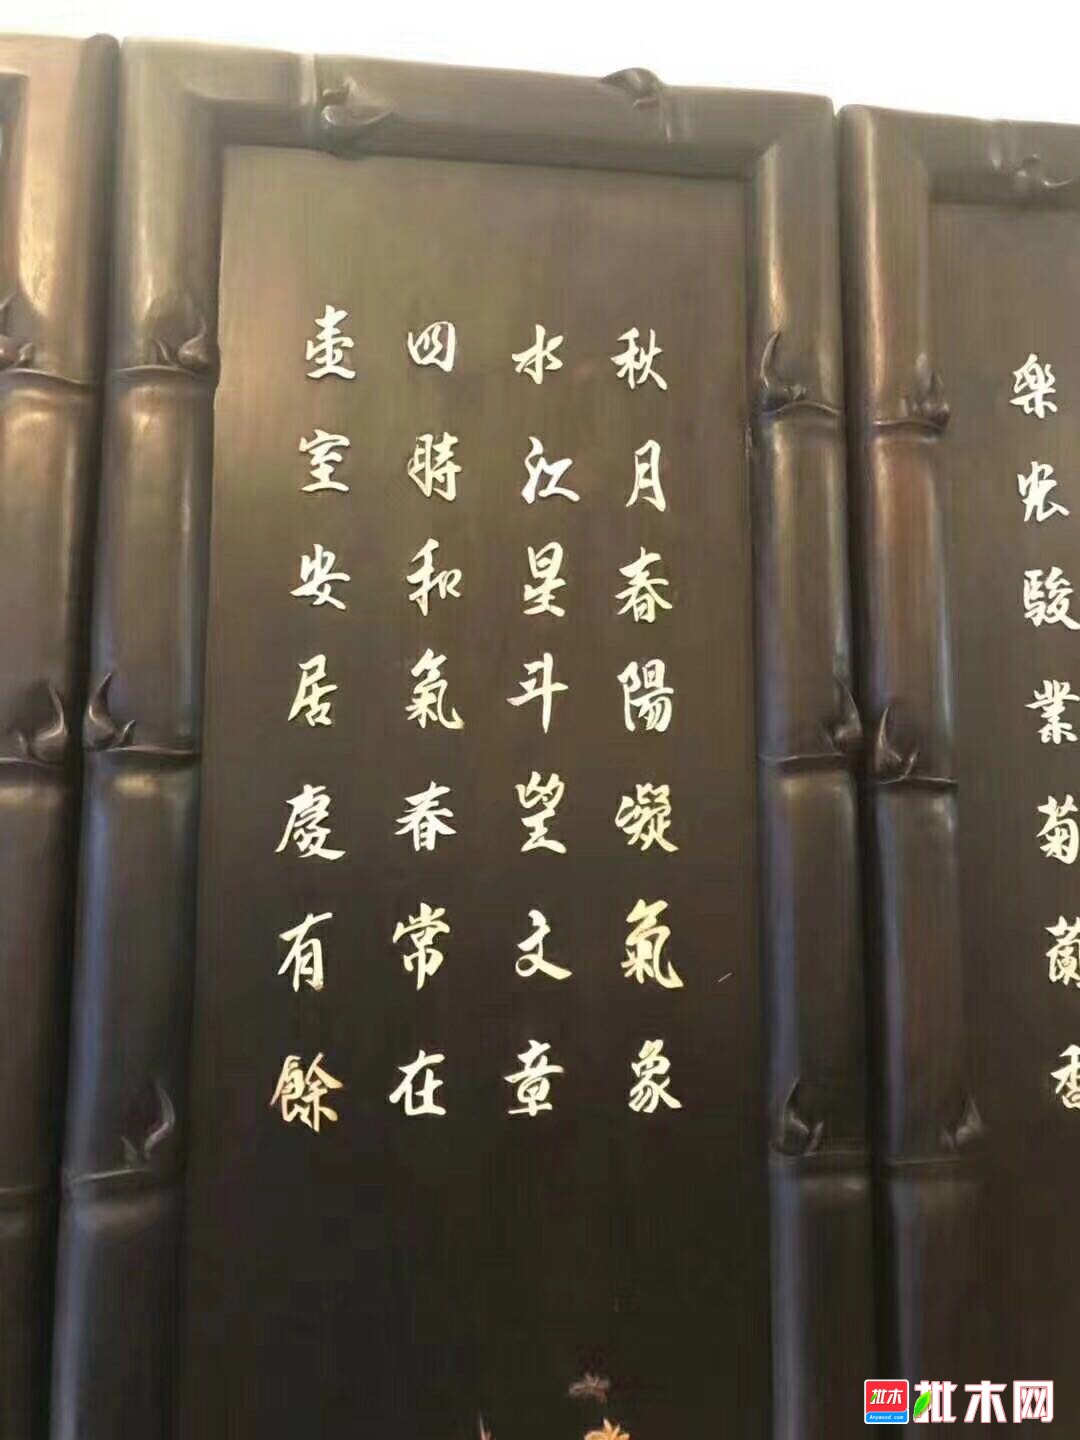 樂農駿業菊蘭香
秋月春陽凝氣象
水江星斗望文章
四時和氣春常在
壺室安居慶有餘
批木
Anywood.com
批木网